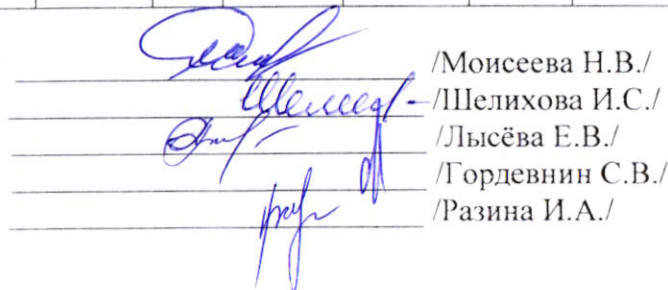 /Моисеева Н.В./
/Шелихова И.С./
/Лысёва Е.В./
/Гордевнин С.В./
/Разина И.А./